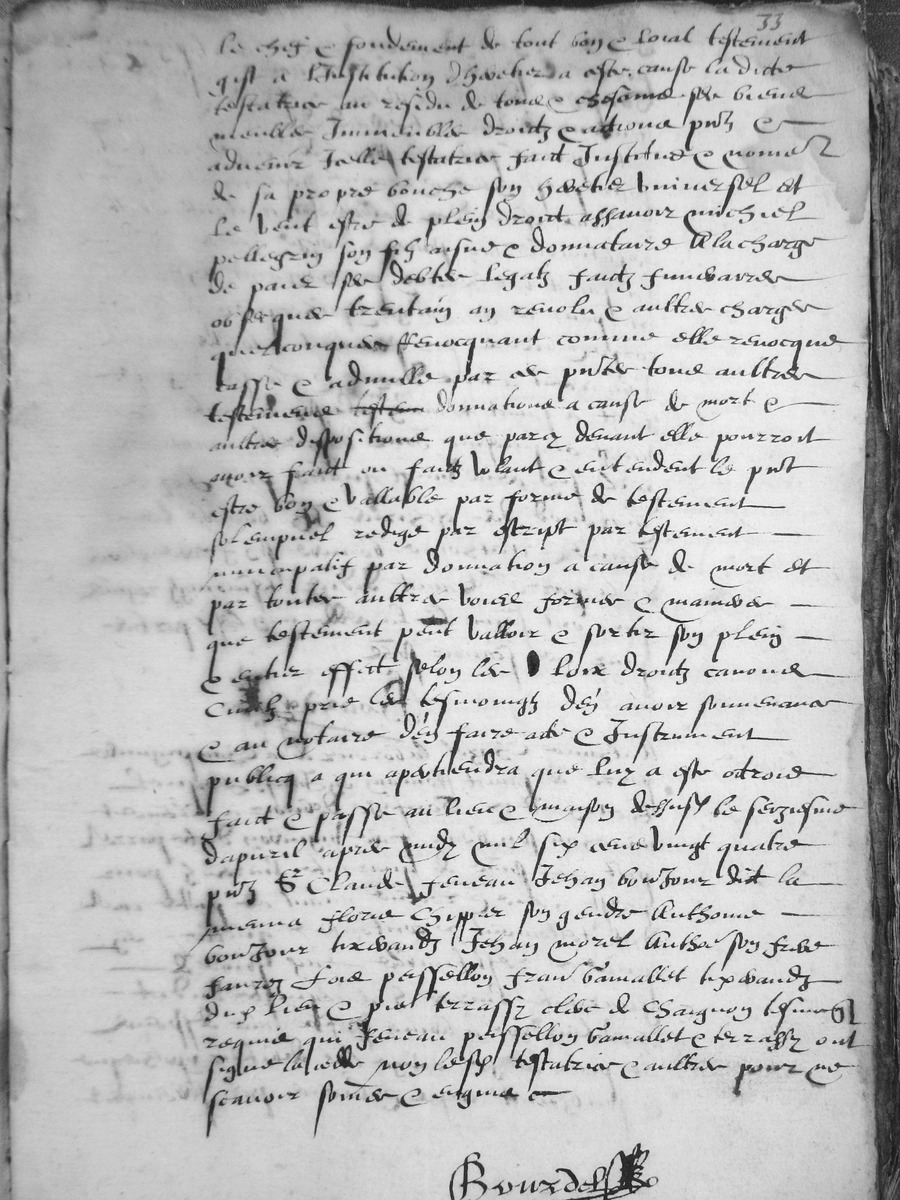 33
le chef & fondement de tout bon & loial testement
gist a l'Institution dheretier a ceste cause la dicte
testatrice au residu de tous & chescuns ses biens
meubles Immeubles droictz & actions pntz &
advenir Icelle testatrice faict Institue & nome
de sa propre bouche son heretier universel et
le veut estre de plein droict assavoir michiel
pellegrin son filz aisne & donnataire A la charge
de paier ses debtes legatz faictz funerares
obseques trentain an revolu & aultres charges
quelconques Revocquant comme elle revocque
casse & adnulle par ces pntes tous aultres
testemens donnations a cause de mort &
aultres dispositions que par cy devant elle pourroit
avoir faict ou faictz vlant & entendent le pnt
estre bon & vallable par forme de testement
solempnel redige par escript par testement
nuncupatif par donnation a cause de mort et
par toutes aultres voies formes & manieres
que testement peut valloir & sortir son plein
& entier effect selon les loix droictz canons
Civilz prie les tesmoingz d'en avoir souvenance
& au notaire d'en faire acte & Instrument
publicq a qui apertiendra que luy a este octroie
faict & passe au lieu & maison dessus le seziesme
dapvril apres midy mil six cens vingt quatre
pntz Sr Claude feneau Jehan bonJour dict la
florie Chipier son gendre Anthome
bonJour tixerandz Jehan morel Anthe son frere
Loie peissellon frans Gamallet tixerandz
dud lieu & pierre terrassy clerc de Chaignon tesmoingz
requis qui feneau peissellon Gamallet & terrassy ont
signe la cedde non lesd testatrice & aultres pour ne
scavoir somes & enquis
Bourdel